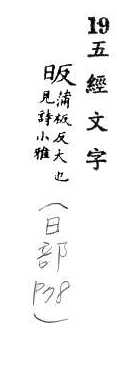 19五經文字
昄 蒲板反大也
見詩小雅
(日部 P78)